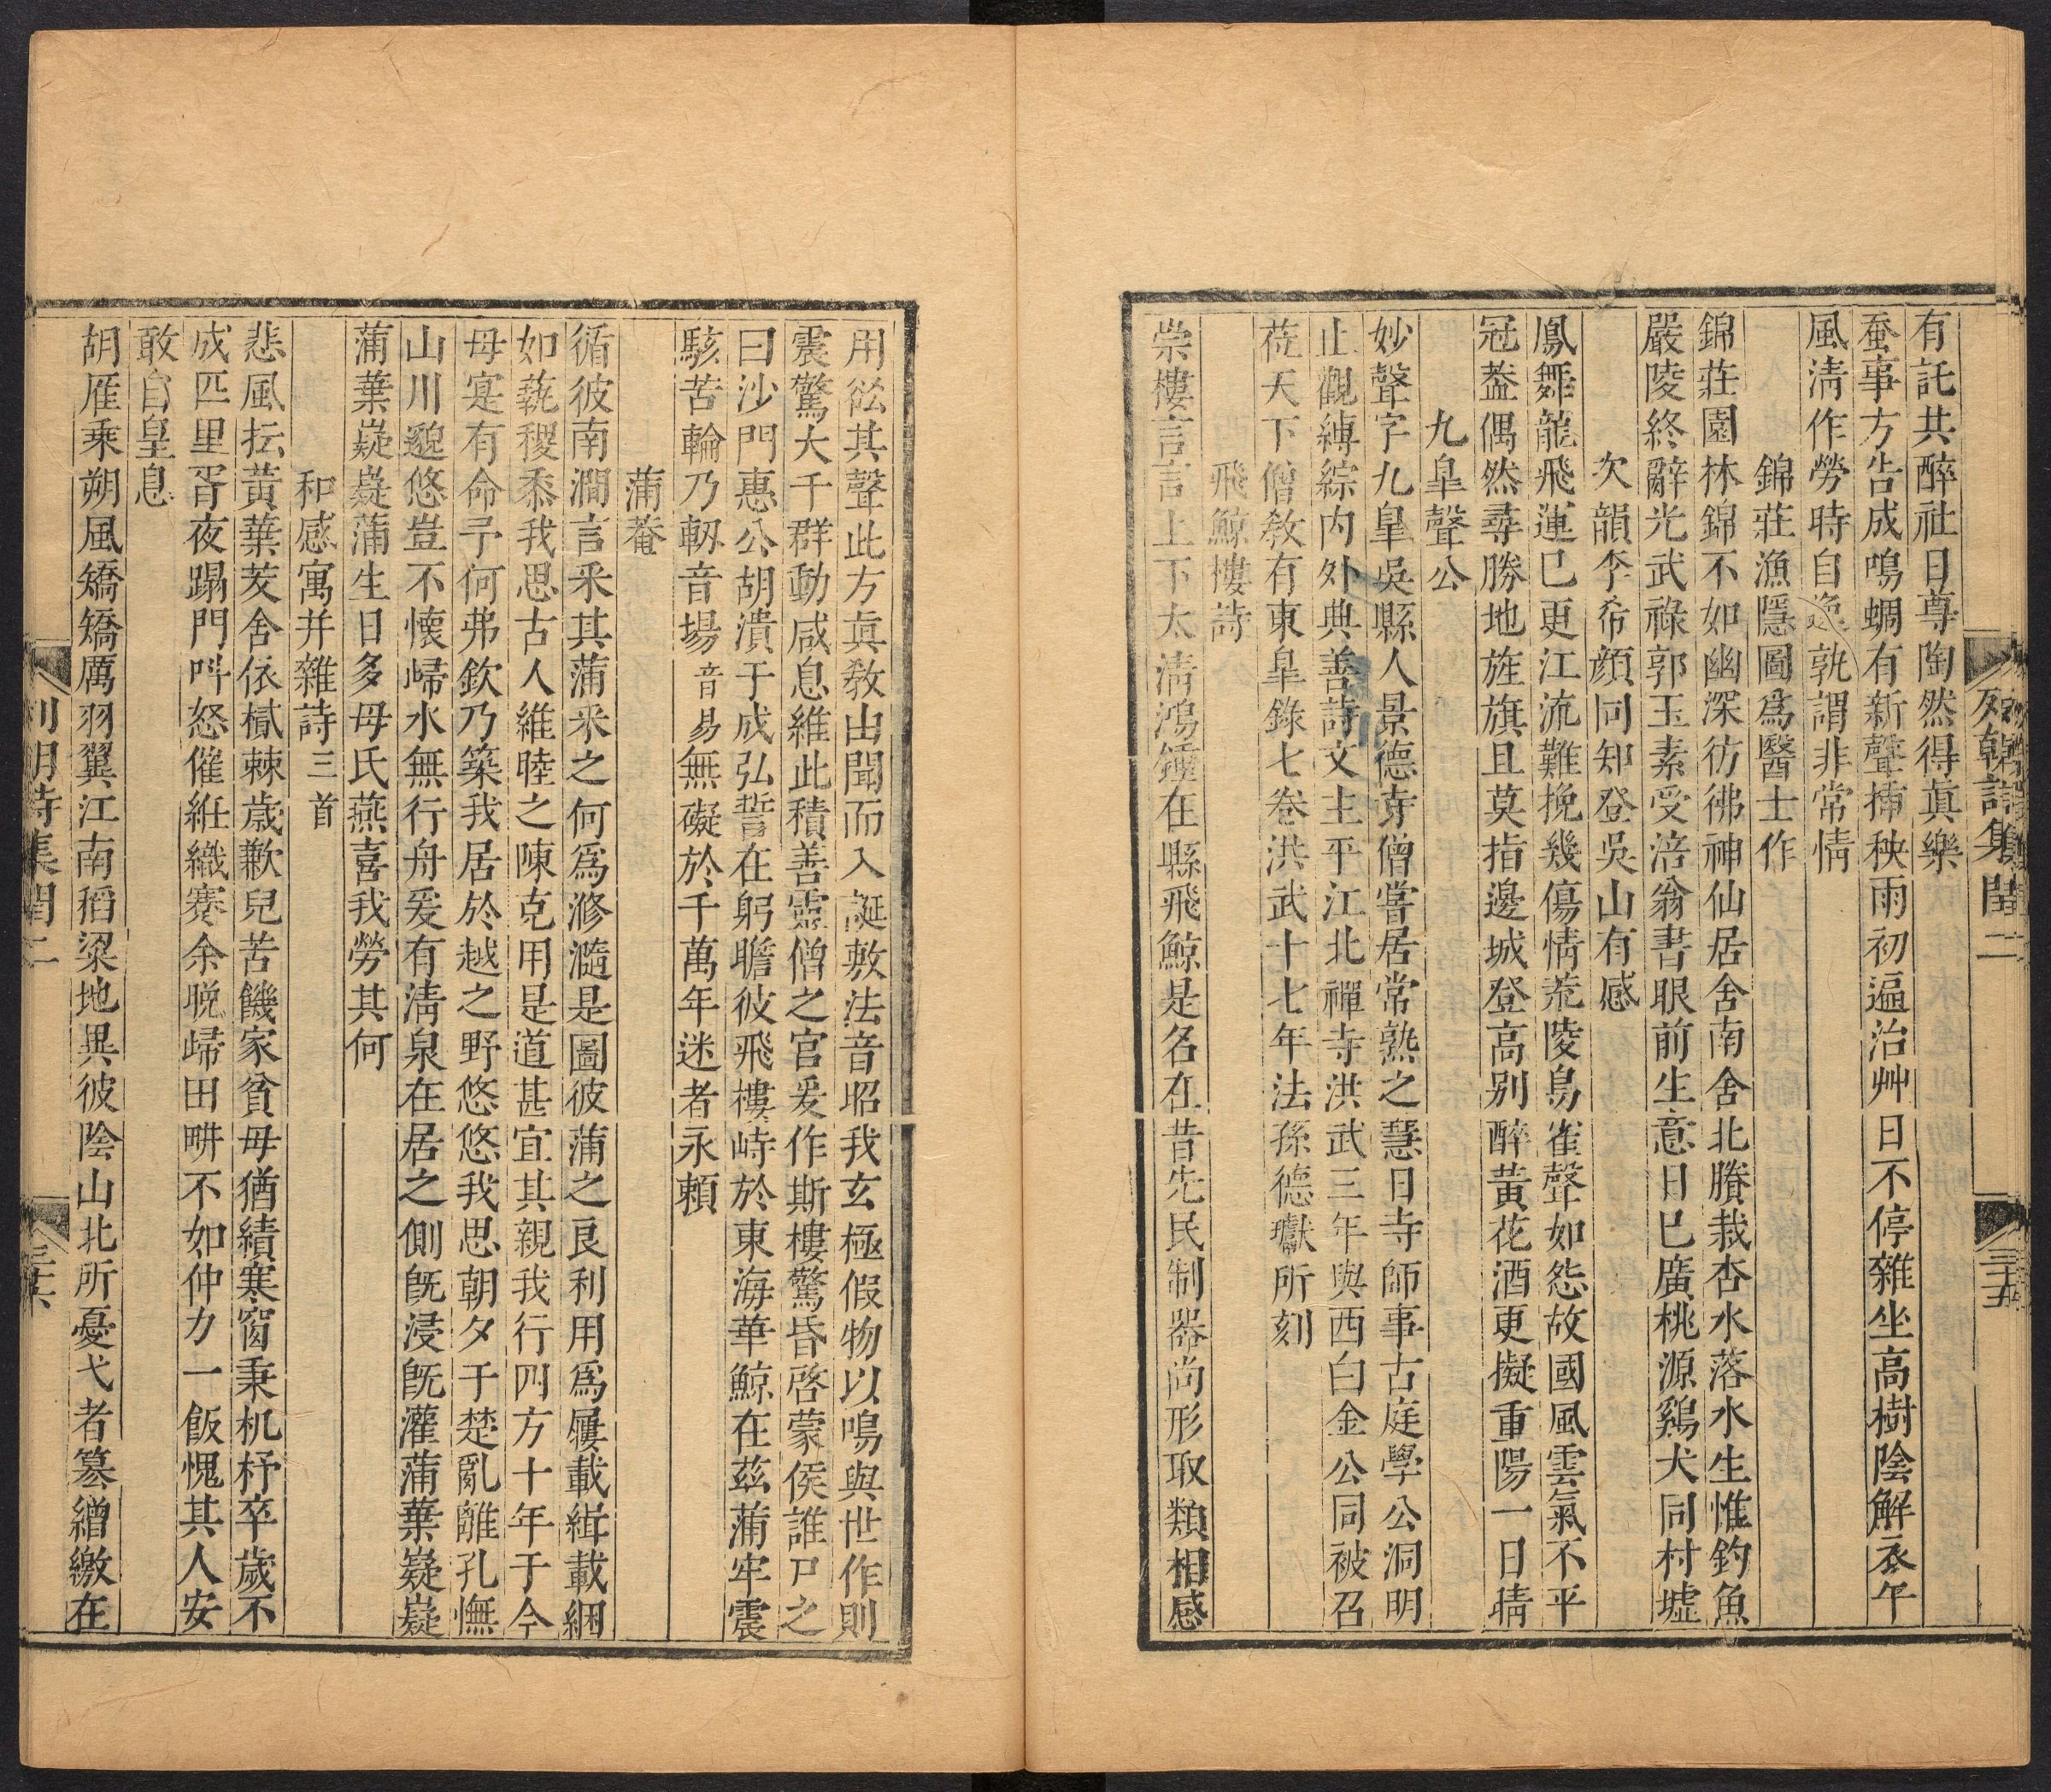 有託共醉社日尊陶然得眞樂
蚕事方告成鳴蜩有新聲揷秧雨初遍治艸日不停雜坐高樹陰解衣午
風淸作勞時自逸孰謂非常情
錦莊漁隱圖爲醫士作
錦莊園林錦不如幽深彷彿神仙居舍南舍北賸栽杏水落水生惟釣魚
嚴陵終辭光武祿郭玉素受涪翁書眼前生意日巳廣桃源鷄犬同村墟
次韻李希顔同知登吳山有感
鳳舞龍飛運巳更江流難挽幾傷情荒陵鳥雀聲如怨故國風雲氣不平
冠葢偶然尋勝地旌旗且莫指邊城登高别醉黃花酒更擬重陽一日晴
九臯聲公
妙聲字九臯吳縣人景德寺僧嘗居常熟之慧日寺師事古庭學公洞明
止觀縛綜内外典善詩文主平江北禪寺洪武三年與西白金公同被召
莅天下僧敎有東臯錄七卷洪武十七年法孫德瓛所刻
飛鯨樓詩
崇樓言言上下太淸鴻鍾在縣飛鯨是名在昔先民制器尚形取類相感
列朝詩集閏二
三五
用訟其聲此方眞敎由聞而入誕敷法音昭我玄極假物以鳴與世作則
震驚大千群動咸息維此積善靈僧之宮爰作斯樓驚昏啓蒙侯誰尸之
曰沙門惠公胡潰于成弘誓在躬瞻彼飛樓峙於東海華鯨在茲蒲牢震
駭苦輪乃軔音場音易無礙於千萬年迷者永賴
蒲菴
循彼南澗言采其蒲采之何爲滫瀡是圖彼蒲之良利用爲屨載緝載綑
如蓺稷黍我思古人維睦之陳克用是道甚宜其親我行四方十年于今
母寔有命予何弗欽乃築我居於越之野悠悠我思朝夕于楚亂離孔憮
山川邈悠豈不懷歸水無行舟爰有淸泉在居之側旣浸旣灌蒲葉嶷嶷
蒲葉嶷嶷蒲生日多母氏燕喜我勞其何
和感寓并雜詩三首
悲風抎黃葉茇舍依樲棘歲歉兒苦饑家貧母猶績寒窗秉机杼卒歲不
成匹里胥夜蹋門呌怒催絍織賽余晚歸田畊不如仲力一飯愧其人安
敢自皇息
胡雁乘朔風矯矯厲羽翼江南稻粱地異彼陰山北所憂弋者篡繒繳在
列朝詩集閏二
三六